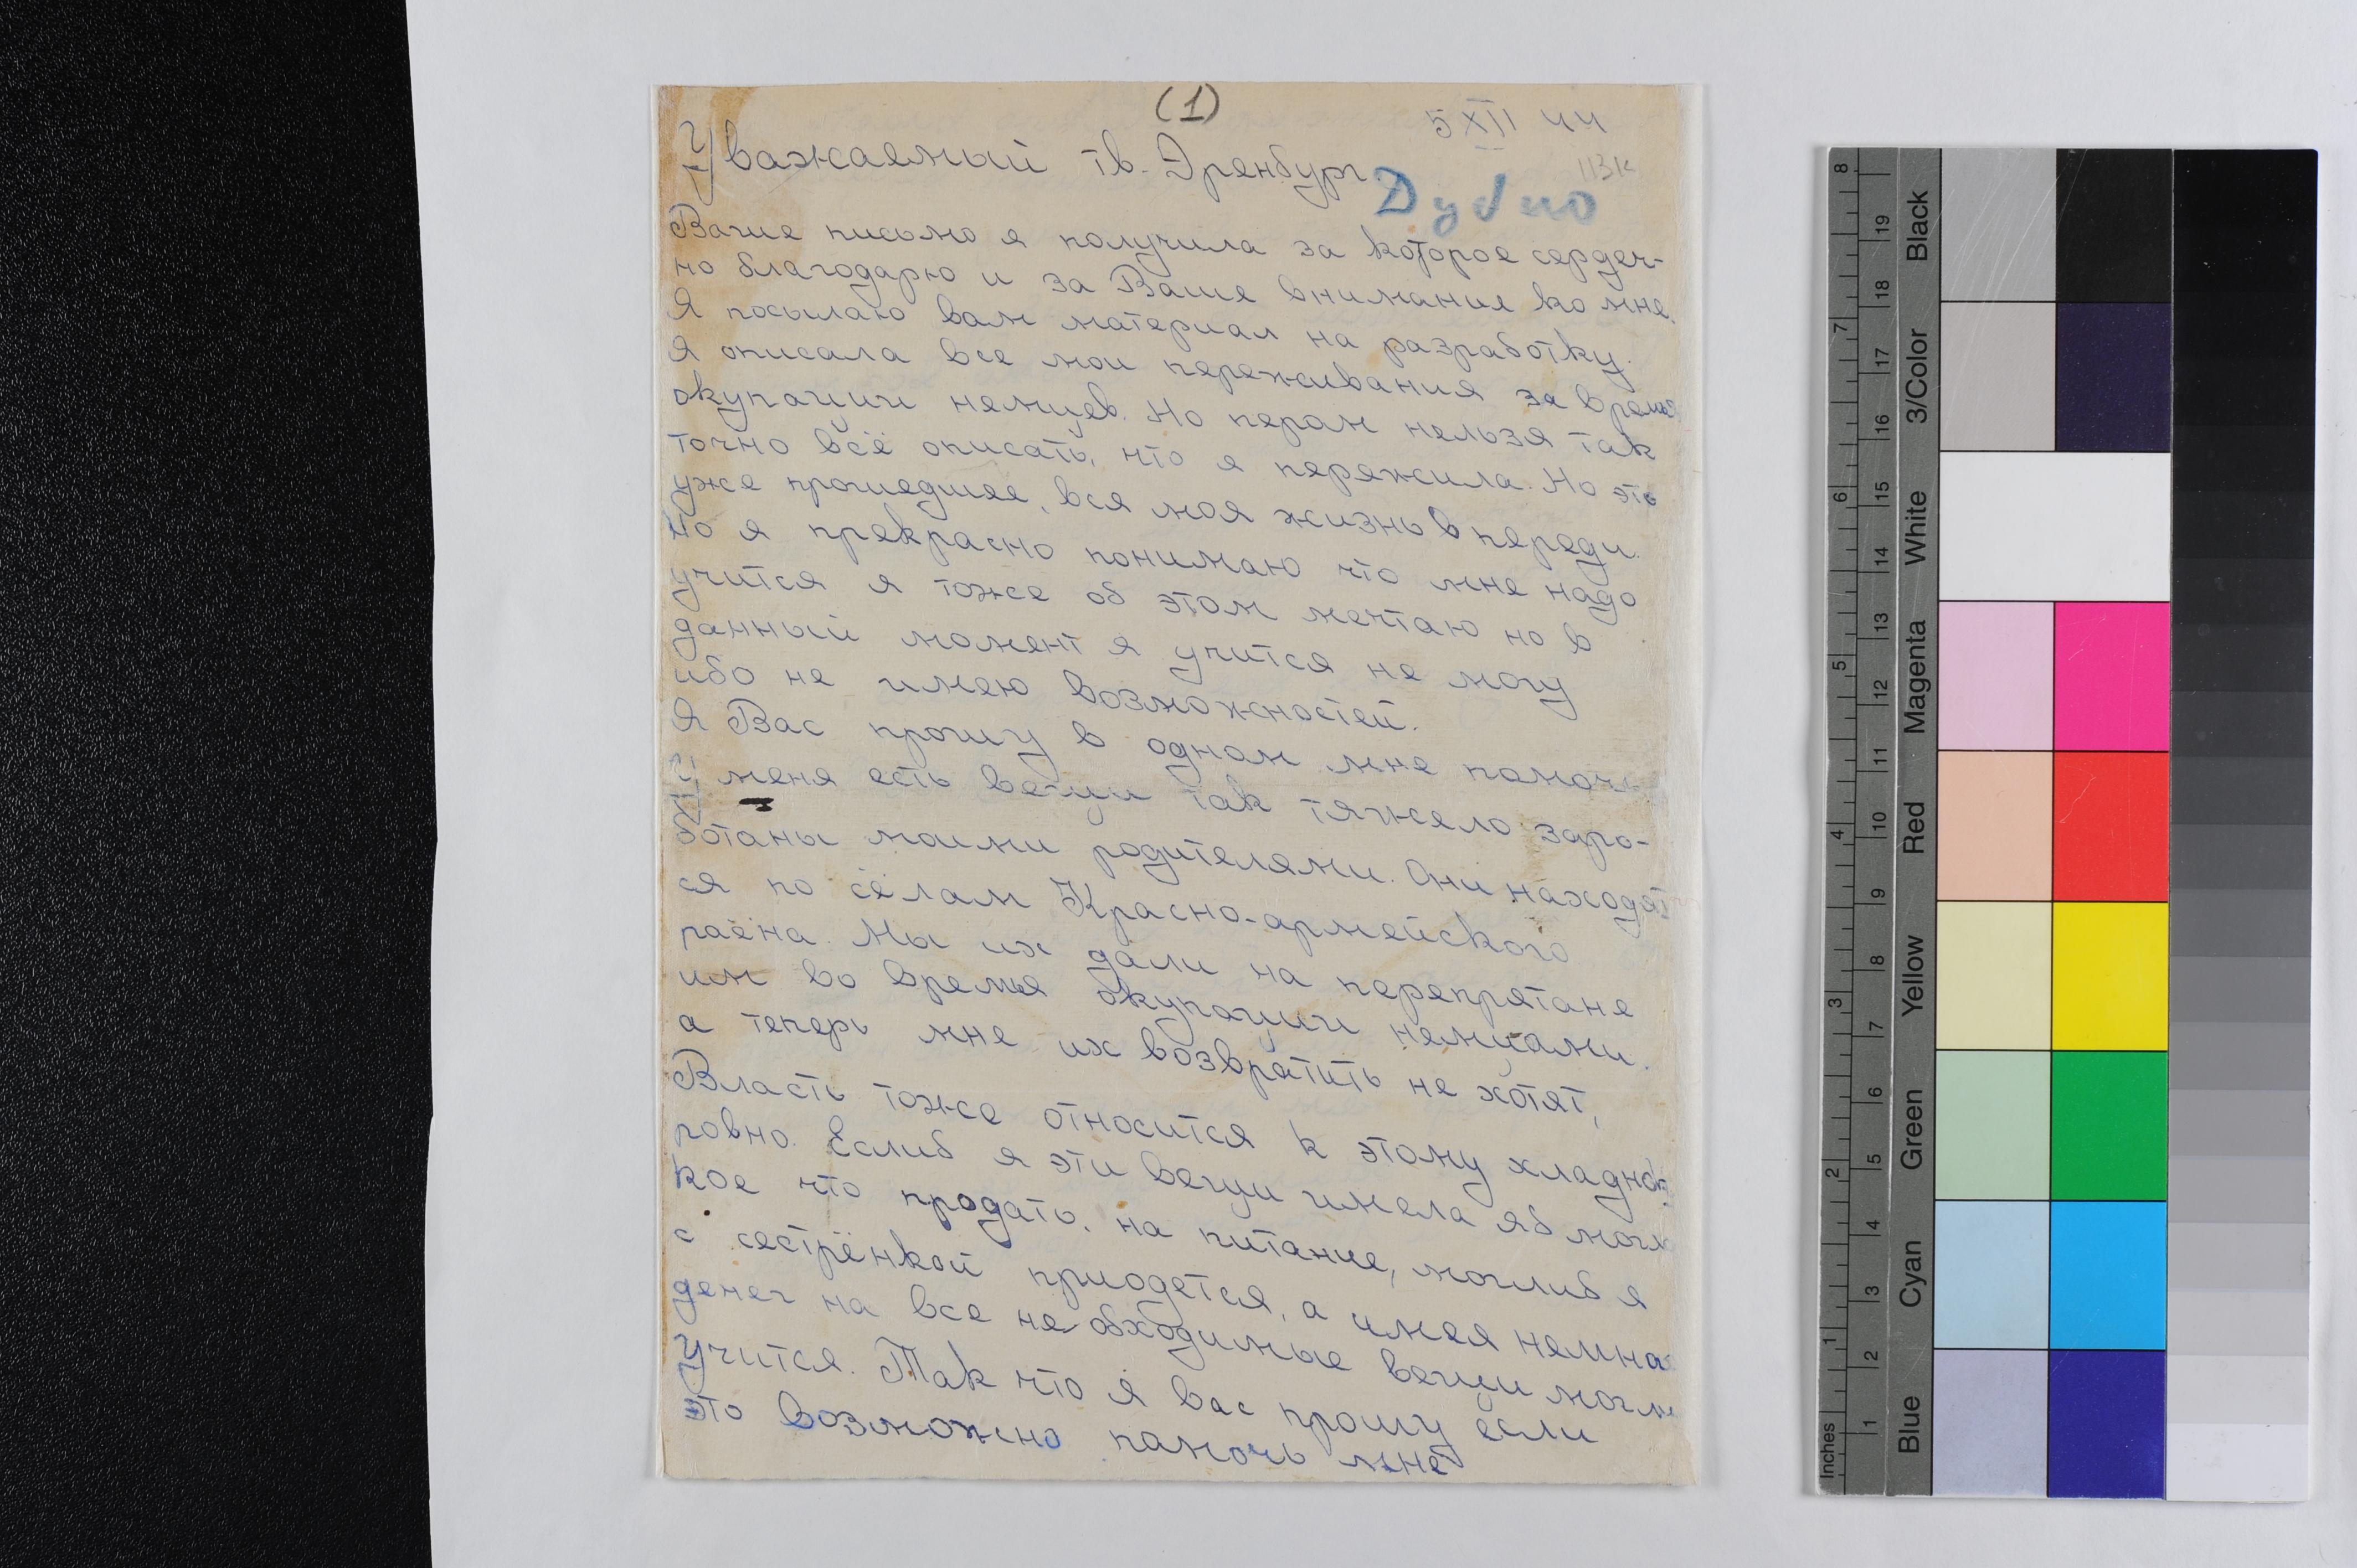 (1)
5 XII 44
113к
Уважаемый тв. Эренбург
Дубно
Ваше письмо я получила за которое сердеч-
но благодарю и за Ваше внимание ко мне.
Я посылаю вам материал на разработку.
Я описала все мои переживания за время
окупации немцев. Но перам нельзя так
точно всё описать, что я пережила. Но это
уже прошедшее, вся моя жизнь в переди.
Но я прекрасно понимаю что мне надо
учится я тоже об этом мечтаю но в
данный момент я учится не могу
ибо не имею возможностей.
Я Вас прошу в одном мне помочь
У меня есть вещи так тяжело зара-
ботаны моими родителями. Они находят
ся по сёлам Красно-армейского
раёна. Мы их дали на перепрятане
им во время окупации немцами.
а теперь мне их возвратить не хотят,
Власть тоже относится к этому хладнок
ровно. Еслиб я эти вещи имела яб могла
кое что продать. на питание, моглиб я
с сестрёнкой приодется, а имея немна
денег на все необходимые вещи могли
учится. Так что я вас прошу если
это возможно памочь мне
Inches
1
2
3
4
5
6
7
8
1
2
3
4
5
6
7
8
9
10
11
12
13
14
15
16
17
18
19
Blue
Cyan
Green
Yellow
Red
Magenta
White
3/Color
Black